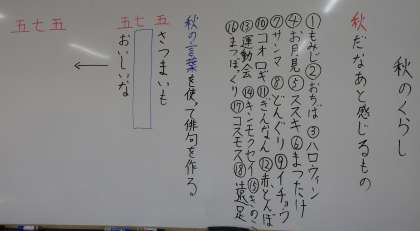 秋のくらし
秋だなあと感じるもの
①もみじ②おちば③ハロウィン
④お月見⑤ススキ⑥まつたけ
⑦サンマ⑧どんぐり⑨イチョウ
⑩コオロギ⑪ぎんなん⑫赤とんぼ
⑬運動会⑭キンモクセイ⑮きのこ
⑯まつぼっくり⑰コスモス⑱遠足
秋の言葉を使って俳句を作る
五 さつまいも
七
五 おいしいな
←
五七五